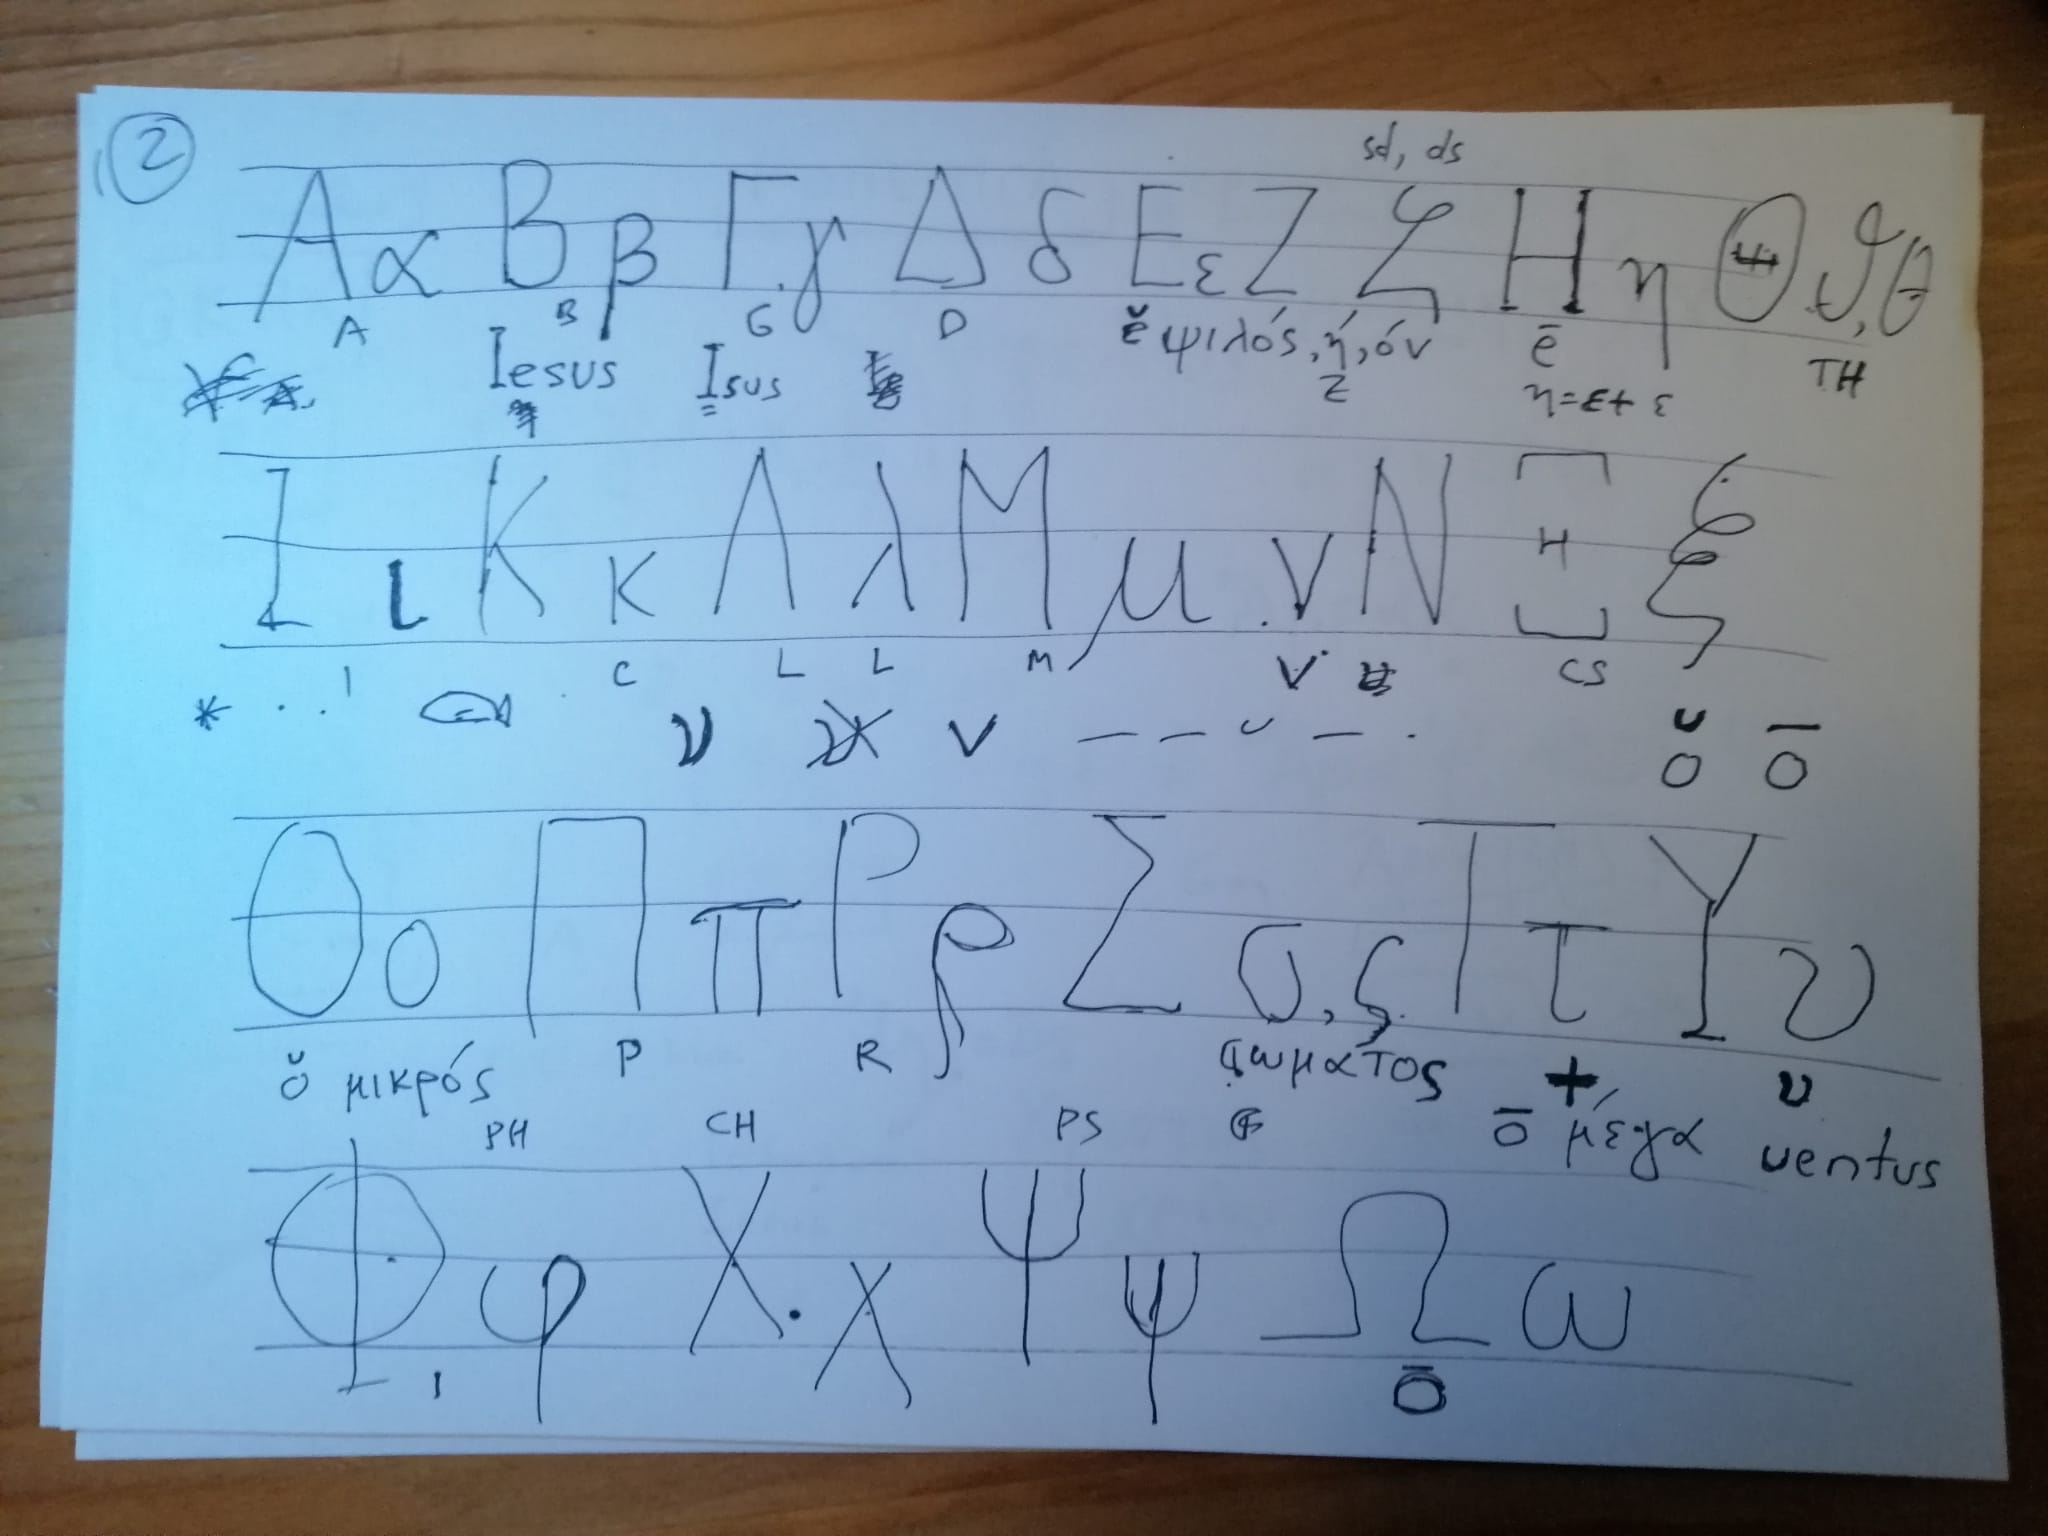 2
sd, ds
Α α Β β Γ γ Δ δ Ε ε Ζ ζ Η η Θ ϑ, θ
A B G D ĕ ψιλός, ή, όν ē TH
Iesus Isus Z η=ε+ε
Ι ι Κ κ Λ λ Μ μ ν Ν Ξ ξ
I C L L M V CS
* υ ν — — ˘ — ŏ ō
Ο ο Π π Ρ ρ Σ σ, ς Τ τ Υ υ
ŏ μικρός P R σωματος + υ
PH CH PS ō μέγα ventus
Φ φ Χ χ Ψ ψ Ω ω
ō